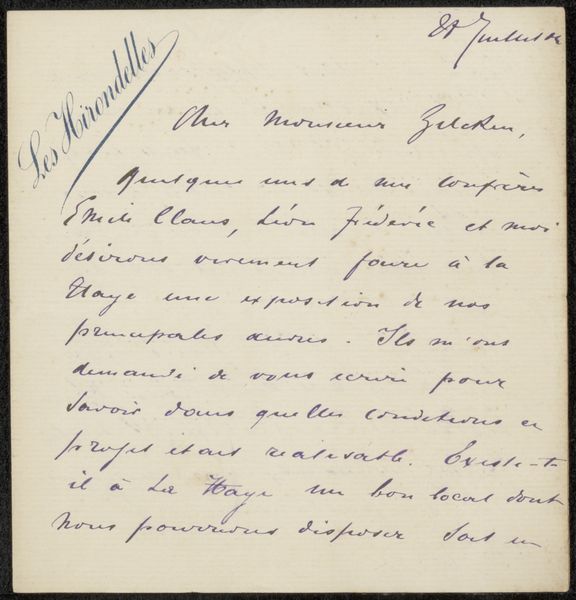 Les Hirondelles
Juillet
Cher Monsieur Zilcken,
Quelques uns de mes confrères
Emile Claus, Léon Frédéric et moi
désirons vivement faire à la
Haye une exposition de nos
principales œuvres. Ils m'ont
demandé de vous écrire pour
savoir dans quelles conditions ce
projet était réalisable. Existe-t-
il à La Haye un bon local dont
nous pourrions disposer soit en